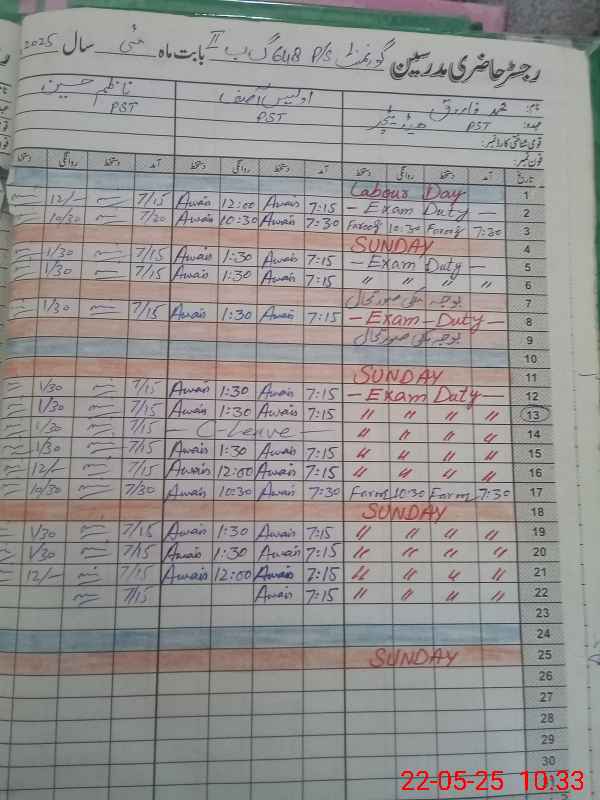 رجسٹر حاضری مدرسین گورنمنٹ P/S 648 گ ب II بابت ماہ مئی سال 2025
نام: محمد فاروق اویس آصف ناظم حسین
عہدہ: PST ہیڈ ٹیچر PST PST
قومی شناختی کارڈ نمبر:
فون نمبر:
تاریخ آمد دستخط روانگی دستخط آمد دستخط روانگی دستخط آمد دستخط روانگی دستخط
1 Labour Day
2 - Exam Duty - 7:15 Awais 12:00 Awais 7/15 12/-
3 7:30 Farooq 10:30 Farooq 7:30 Awais 10:30 Awais 7/20 10/30
4 SUNDAY
5 - Exam Duty - 7:15 Awais 1:30 Awais 7/15 1/30
6 " " " " 7:15 Awais 1:30 Awais 7/15 1/30
7 بوجہ ملکی صورتحال
8 - Exam - Duty - 7:15 Awais 1:30 Awais 7/15 1/30
9 بوجہ ملکی صورتحال
10
11 SUNDAY
12 - Exam Duty - 7:15 Awais 1:30 Awais 7/15 1/30
13 " " " " 7:15 Awais 1:30 Awais 7/15 1/30
14 " " " " - C-Leave - 7/15 1/30
15 " " " " 7:15 Awais 1:30 Awais 7/15 1/30
16 " " " " 7:15 Awais 12:00 Awais 7/15 12/-
17 7:30 10:30 7:30 Awais 10:30 Awais 7/30 10/30
18 SUNDAY
19 " " " " 7:15 Awais 1:30 Awais 7/15 1/30
20 " " " " 7:15 Awais 1:30 Awais 7/15 1/30
21 " " " " 7:15 Awais 12:00 Awais 7/15 12/-
22 " " " " 7:15 Awais 7/15
23
24
25 SUNDAY
26
27
28
29
30
31
22-05-25 10:33